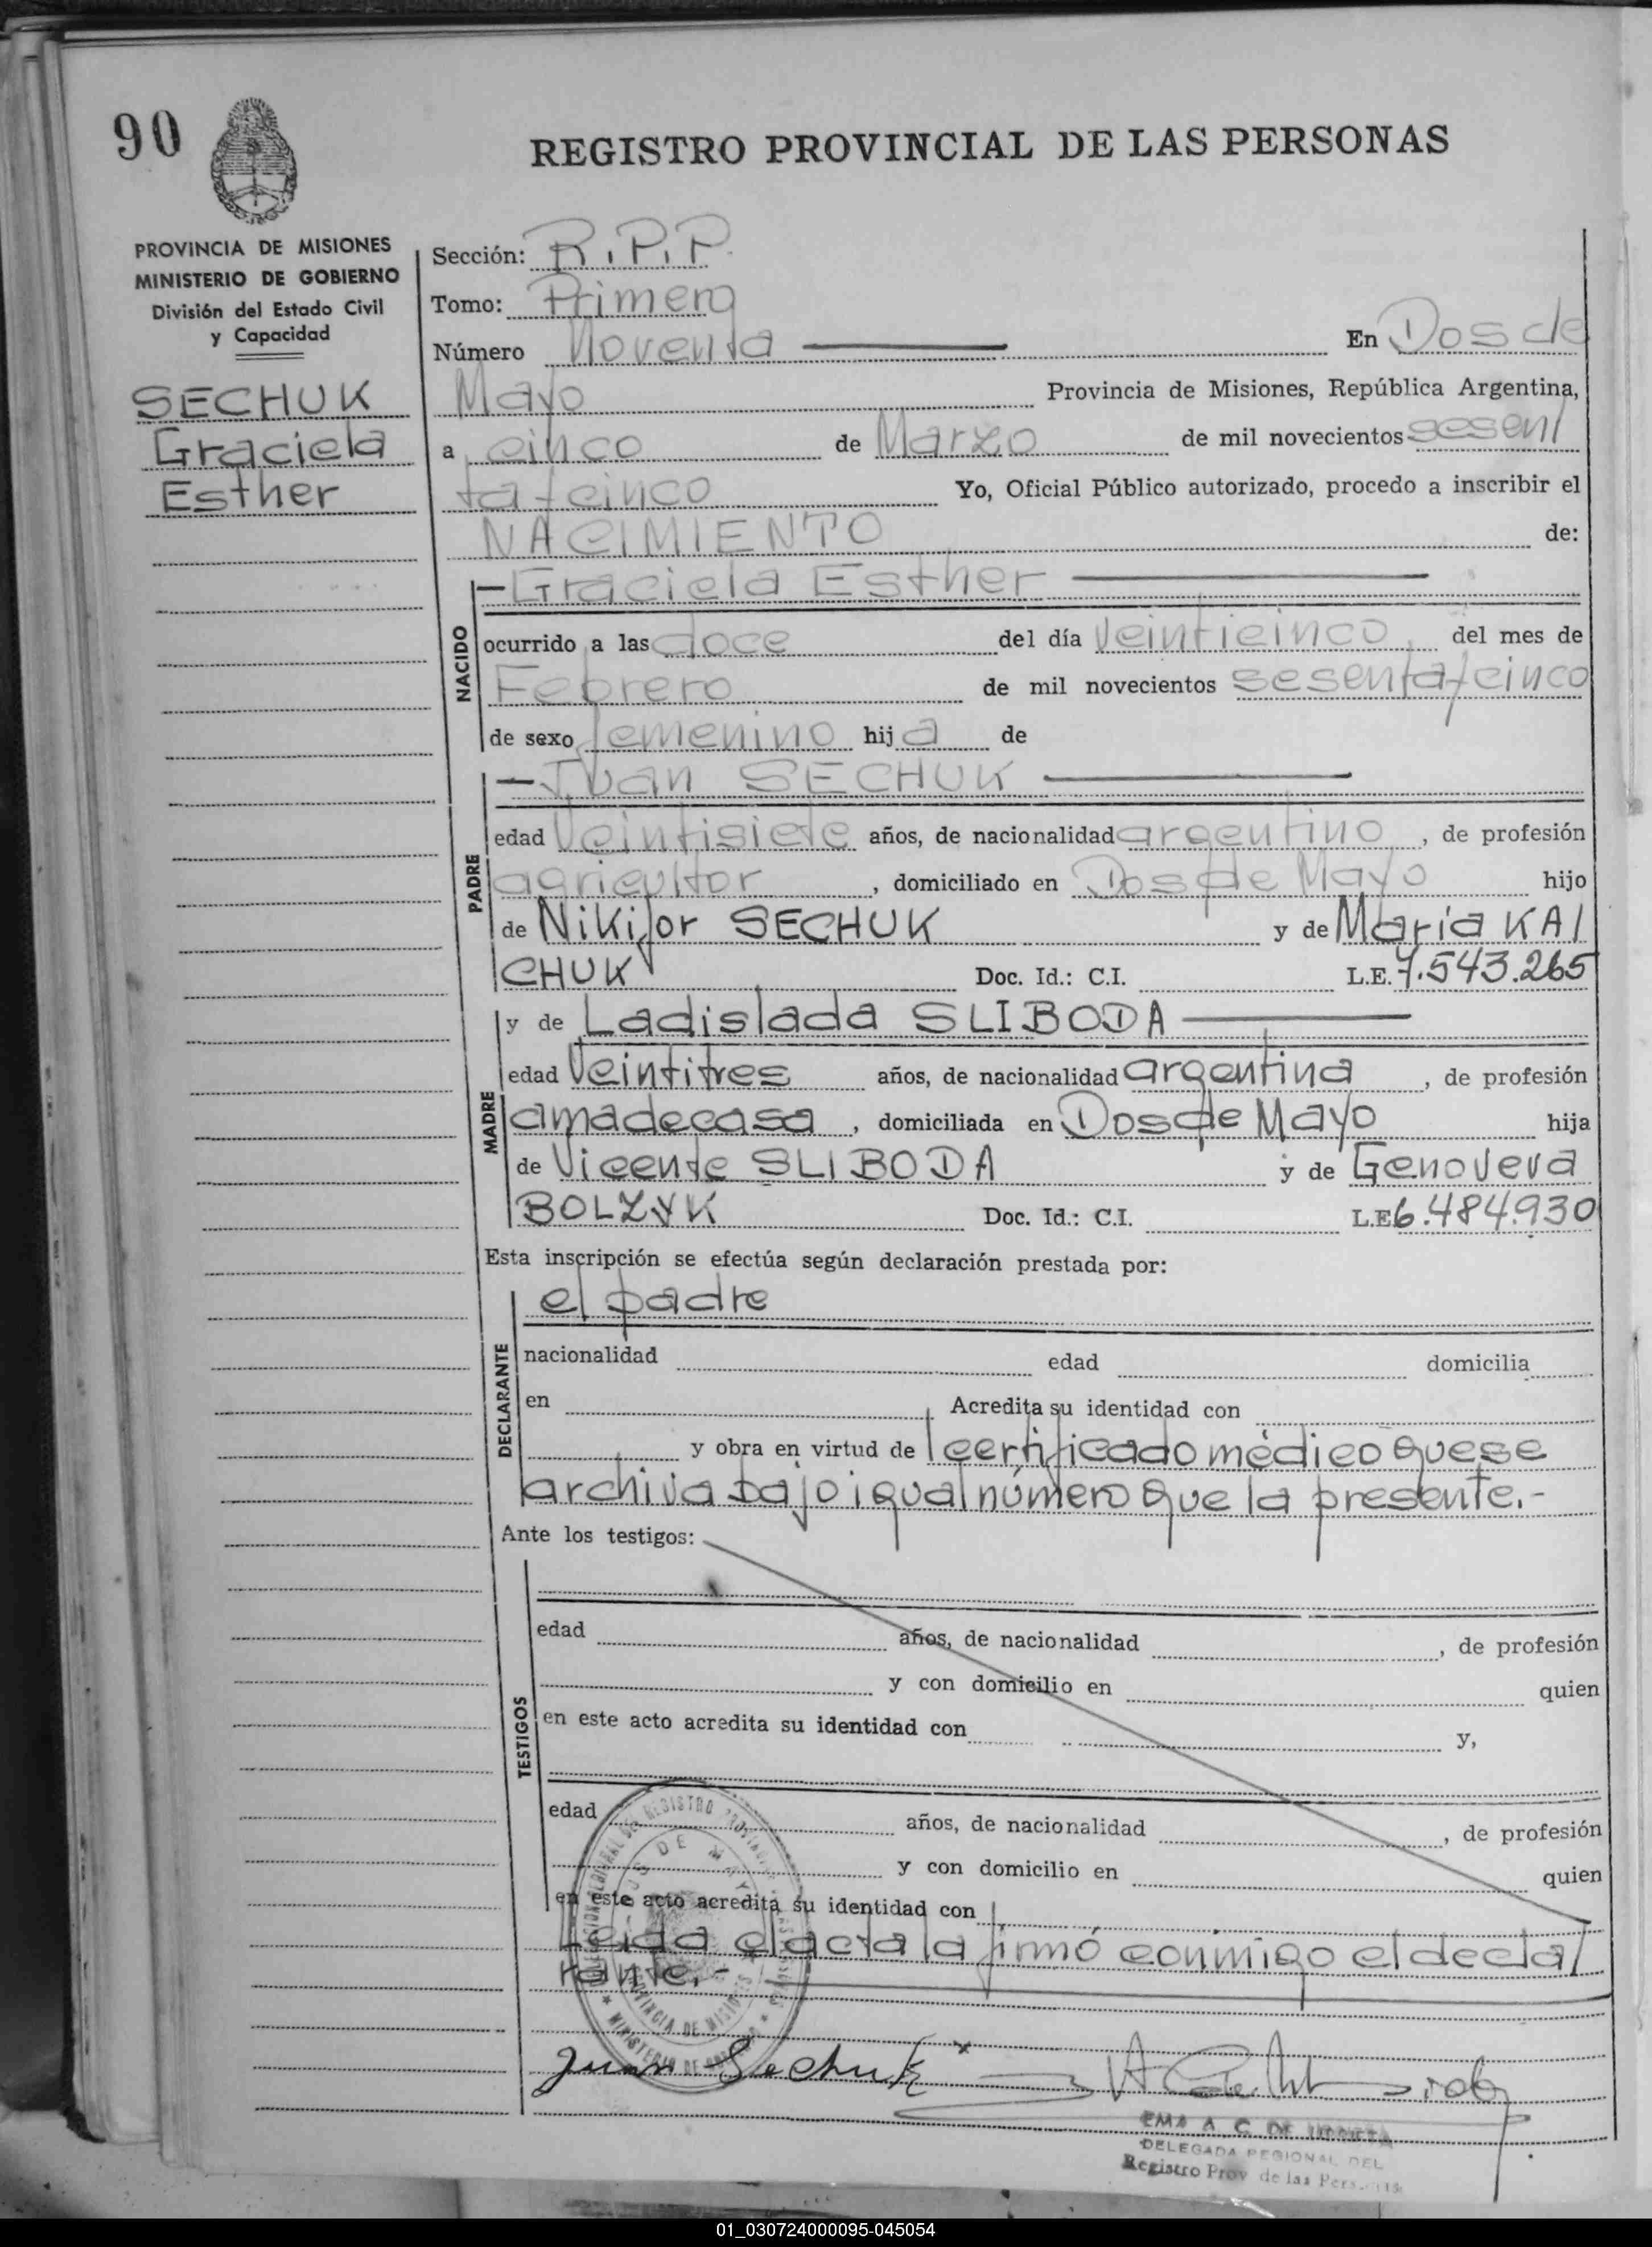 90
REGISTRO PROVINCIAL DE LAS PERSONAS
PROVINCIA DE MISIONES
MINISTERIO DE GOBIERNO
División del Estado Civil
y Capacidad
SECHUK
Graciela
Esther
Sección: R.P.P.
Tomo: Primero
Número Noventa En Dos de
Mayo Provincia de Misiones, República Argentina,
a cinco de Marzo de mil novecientos sesen/
taycinco Yo, Oficial Público autorizado, procedo a inscribir el
NACIMIENTO de:
NACIDO
—Graciela Esther
ocurrido a las doce del día veinticinco del mes de
Febrero de mil novecientos sesentaycinco
de sexo femenino hija de
PADRE
—Juan SECHUK
edad veintisiete años, de nacionalidad argentino, de profesión
agricultor, domiciliado en Dos de Mayo hijo
de Nikifor SECHUK y de María KAI/
CHUK Doc. Id.: C.I. L.E. 7.543.265
MADRE
y de Ladislada SLIBODA
edad veintitres años, de nacionalidad argentina, de profesión
amadecasa, domiciliada en Dos de Mayo hija
de Vicente SLIBODA y de Genoveva
BOLZYK Doc. Id.: C.I. L.E 6.484.930
Esta inscripción se efectúa según declaración prestada por:
DECLARANTE
el padre
nacionalidad edad domicilia
en Acredita su identidad con
y obra en virtud de certificado médico que se
archiva bajo igual número que la presente.-
Ante los testigos:
TESTIGOS
edad años, de nacionalidad , de profesión
y con domicilio en quien
en este acto acredita su identidad con y,
edad años, de nacionalidad , de profesión
y con domicilio en quien
en este acto acredita su identidad con
Leída el acta la firmó conmigo el decla/
rante.-
Juan Sechuk
EMA A. C. DE
DELEGADA REGIONAL DEL
Registro Prov de las Pers
01_030724000095-045054